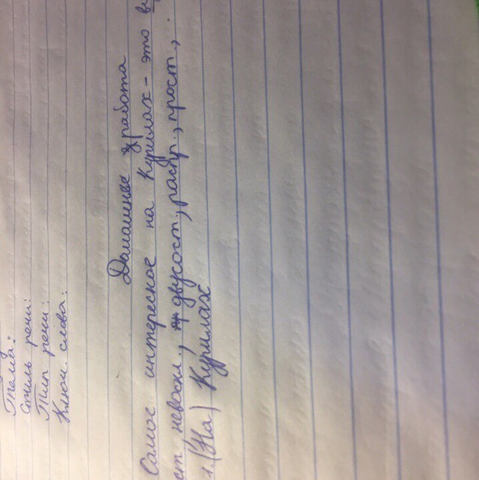 Тема:
Стиль речи:
Тип речи:
Ключ. слова:
Домашнее работа
Самое интересное на Курилах - это
невоскл., двусост., распр., прост.,
1. (На) Курилах